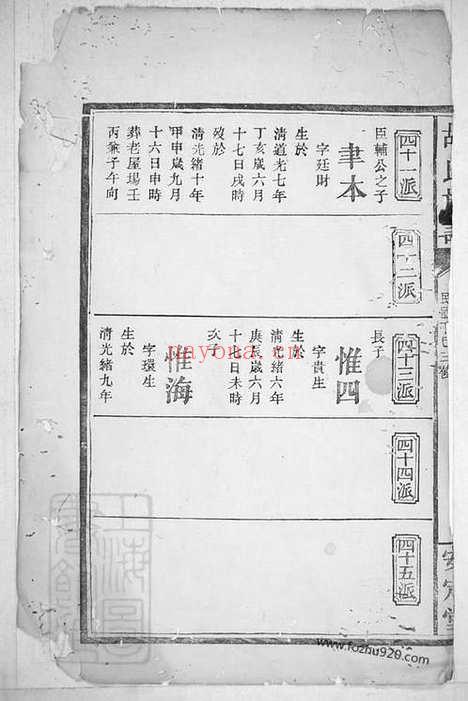 四十一派
臣輔公之子
聿本
字廷財
生於
清道光七年
丁亥歲六月
十七日戌時
歿於
清光緒十年
甲申歲九月
十六日申時
葬老屋場壬
丙兼子午向
四十二派
四十三派
長子
惟四
字貴生
生於
清光緒六年
庚辰歲六月
十七日未時
次子
惟海
字環生
生於
清光緒九年
四十四派
四十五派
安定堂
nayona.cn
www.fozhu920.com